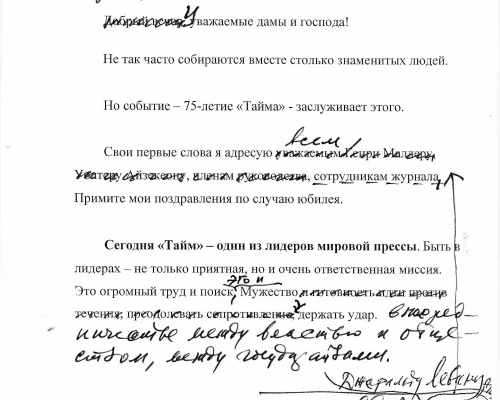 Добрый вечер, уважаемые дамы и господа!
Не так часто собираются вместе столько знаменитых людей.
Но событие – 75-летие «Тайма» - заслуживает этого.
всем
Свои первые слова я адресую уважаемым Генри Маллеру,
Уолтеру Айзексону, членам руководства, сотрудникам журнала,
Примите мои поздравления по случаю юбилея.
Сегодня «Тайм» – один из лидеров мировой прессы. Быть в
лидерах – не только приятная, но и очень ответственная миссия.
это и
Это огромный труд и поиск, Мужество и готовность идти против
течения, преодолевать сопротивление, держать удар. в посред-
ничестве между властью и обще-
ством, между государствами.